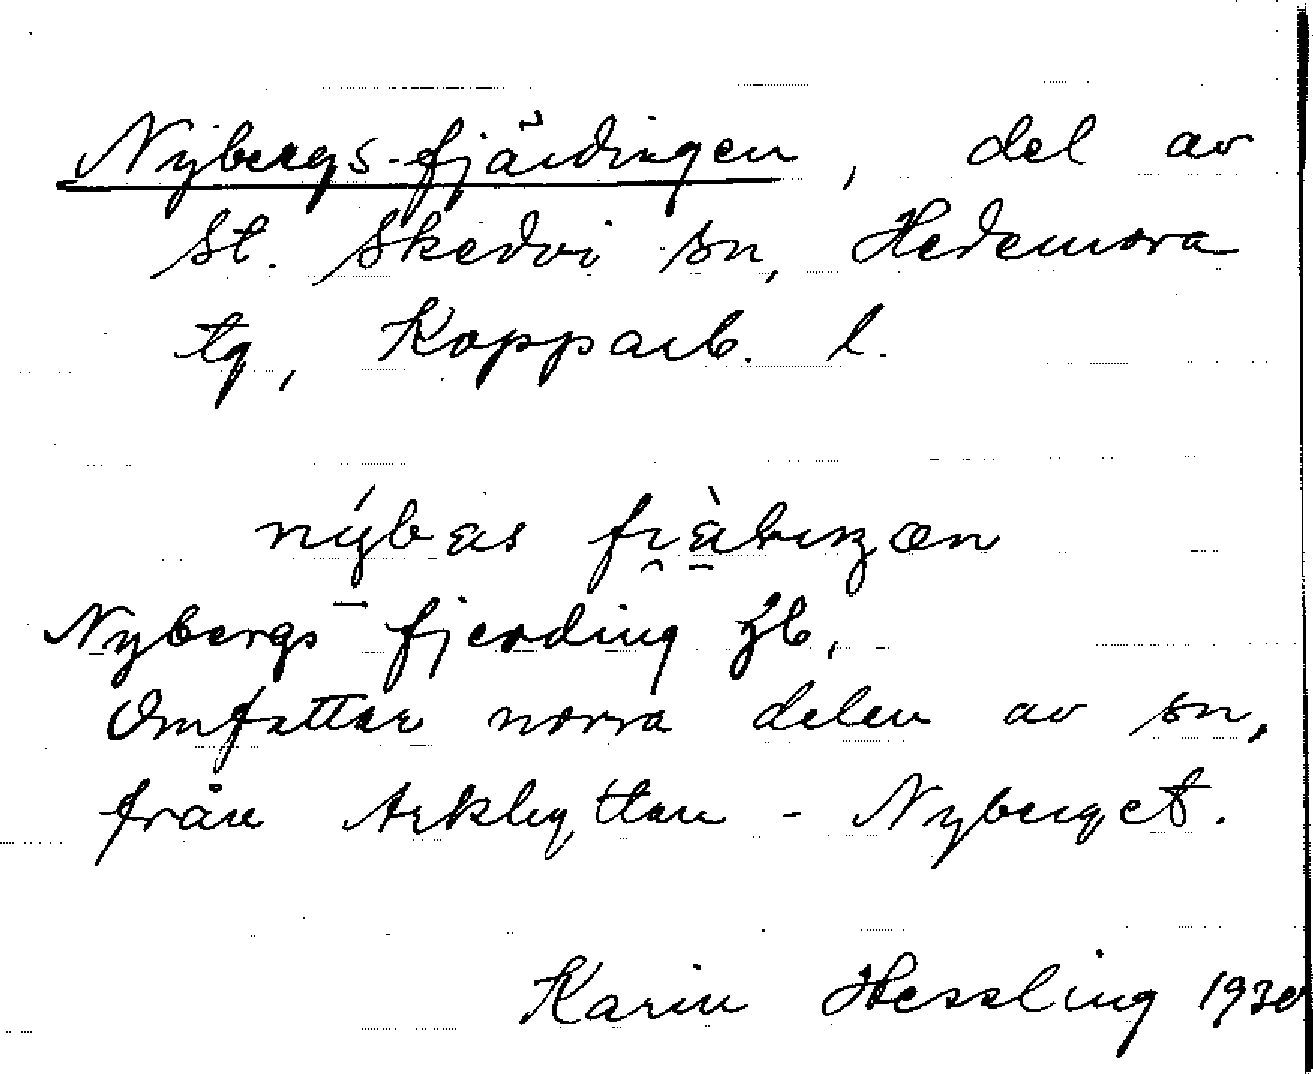 Nybergs-fjärdingen, del av
St. Skedvi sn, Hedemora
tg, Kopparb. l.
Nybergs fjerding Jb.
Omfattar norra delen av sn,
från Arkhyttan - Nyberget.
Karin Hessling 1930